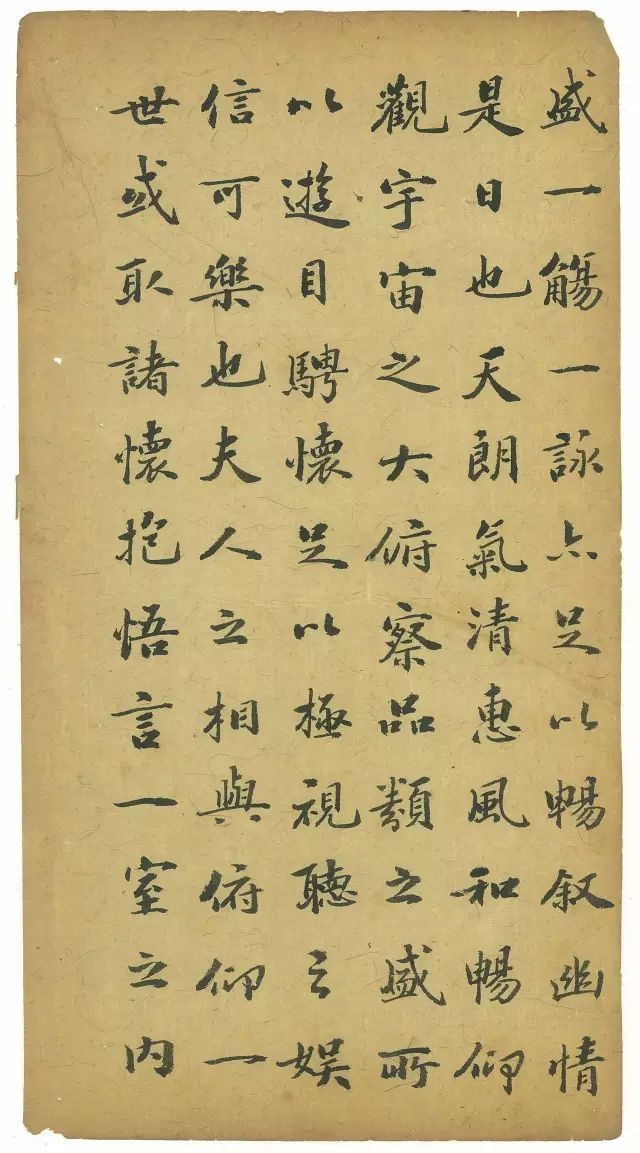 盛一觴一詠亦足以暢叙幽情
是日也天朗氣清惠風和暢仰
觀宇宙之大俯察品類之盛所
以遊目騁懷足以極視聽之娱
信可樂也夫人之相與俯仰一
世或取諸懷抱悟言一室之内